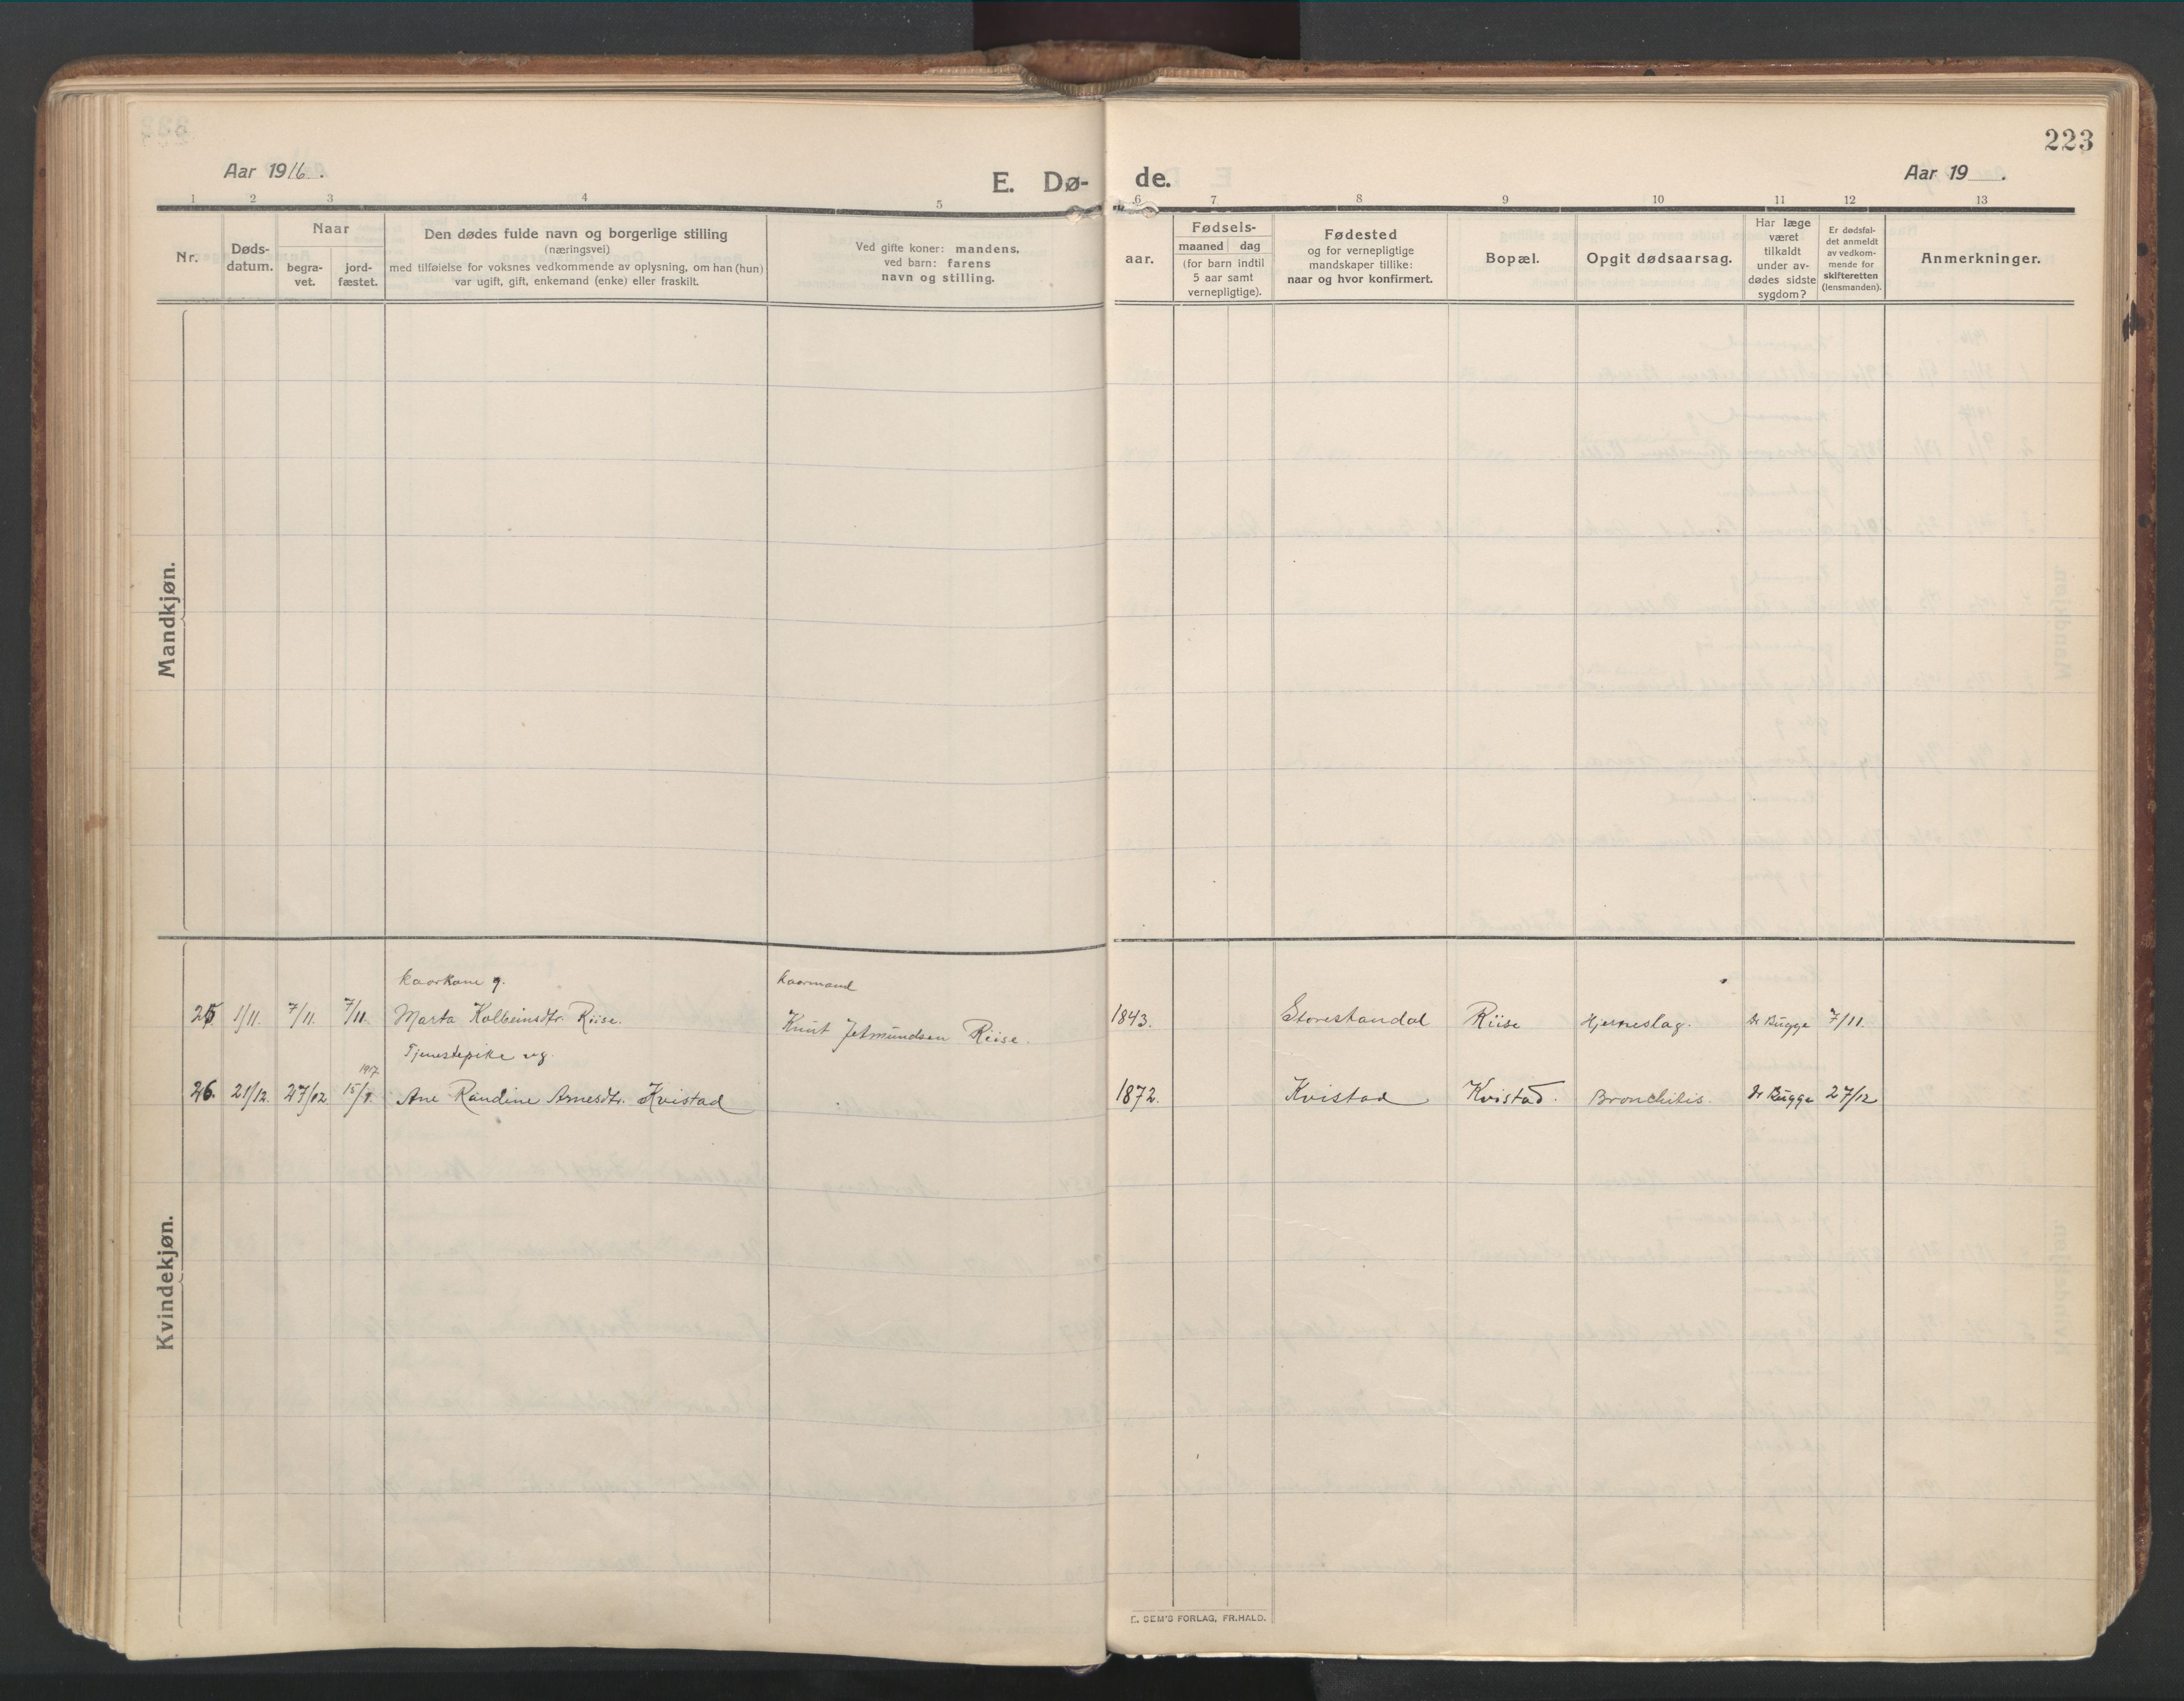 223
Aar 1916.
E. Dø-
de.
Aar 19 .
1 2 3 4 5 6 7 8 9 10 11 12 13
Nr.
Døds-
datum.
Naar
begra-
vet.
jord-
fæstet.
Den dødes fulde navn og borgerlige stilling
(næringsvei)
med tilføielse for voksnes vedkommende av oplysning, om han (hun)
var ugift, gift, enkemand (enke) eller fraskilt.
Ved gifte koner: mandens,
ved barn: farens
navn og stilling.
Fødsels-
aar.
maaned dag
(for barn indtil
5 aar samt
vernepligtige).
Fødested
og for vernepligtige
mandskaper tillike:
naar og hvor konfirmert.
Bopæl.
Opgit dødsaarsag.
Har læge
været
tilkaldt
under av-
dødes sidste
sygdom?
Er dødsfal-
det anmeldt
av vedkom-
mende for
skifteretten
(lensmanden).
Anmerkninger.
Mandkjøn.
Kvindekjøn.
kaarkone g. kaarmand
25 1/11. 7/11. 7/11. Marta Kolbeinsdtr. Riise. Knut Jetmundsen Riise. 1843. Storestandal Riise Hjerneslag. Dr Bugge 7/11.
Tjenestepike ug.
1917.
26. 21/12. 27/12 15/1. Ane Randine Arnesdtr. Kvistad 1872. Kvistad Kvistad. Bronchitis. Dr Bugge 27/12
E. SEM'S FORLAG, FR.HALD.